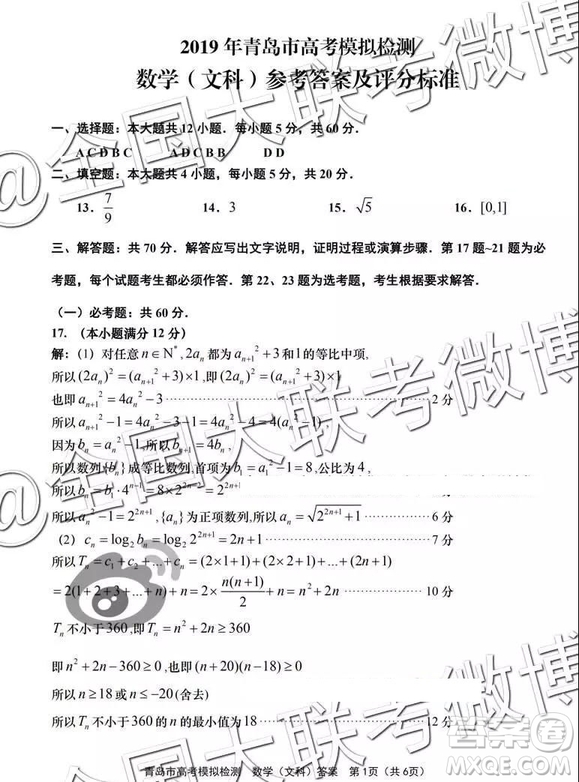 2019 年青岛市高考模拟检测
数学（文科）参考答案及评分标准
一、选择题：本大题共 12 小题．每小题 5 分，共 60 分．
A C D B C A D C B B D D
二、填空题：本大题共 4 小题，每小题 5 分，共 20 分．
13． 7/9 14．3 15．√5 16．[0,1]
三、解答题：共 70 分．解答应写出文字说明，证明过程或演算步骤．第 17 题~21 题为必
考题，每个试题考生都必须作答．第 22、23 题为选考题，考生根据要求解答．
（一）必考题：共 60 分．
17．（本小题满分 12 分）
解：（1）对任意 n∈N*, 2aₙ 都为 aₙ₊₁²+3 和 1 的等比中项,
所以 (2aₙ)²=(aₙ₊₁²+3)×1,即 (2aₙ)²=(aₙ₊₁²+3)×1
也即 aₙ₊₁²=4aₙ²−3 ⋯⋯ 2 分
所以 aₙ₊₁²−1=4aₙ²−3−1=4aₙ²−4=4(aₙ²−1),
因为 bₙ=aₙ²−1,所以 bₙ₊₁=4bₙ,
所以数列{bₙ}成等比数列,首项为 b₁=a₁²−1=8,公比为 4,
所以 bₙ=b₁·4ⁿ⁻¹=8×2²ⁿ⁻²=2²ⁿ⁺¹
所以 aₙ²−1=2²ⁿ⁺¹,{aₙ}为正项数列,所以 aₙ=√(2²ⁿ⁺¹+1) ⋯⋯ 6 分
（2） cₙ=log₂bₙ=log₂2²ⁿ⁺¹=2n+1 ⋯⋯ 7 分
所以 Tₙ=c₁+c₂+...+cₙ=(2×1+1)+(2×2+1)+...+(2n+1)
=2(1+2+3+...+n)+n=2×n(n+1)/2+n=n²+2n ⋯⋯ 10 分
Tₙ 不小于 360,即 Tₙ=n²+2n≥360
即 n²+2n−360≥0,也即(n+20)(n−18)≥0
所以 n≥18 或 n≤−20(舍去)
所以 Tₙ 不小于 360 的 n 的最小值为 18 ⋯⋯ 12 分
青岛市高考模拟检测 数学（文科）答案 第 1页（共 6页）
全国大联考微博
全国大联考微博
作业帮
MXQE.COM